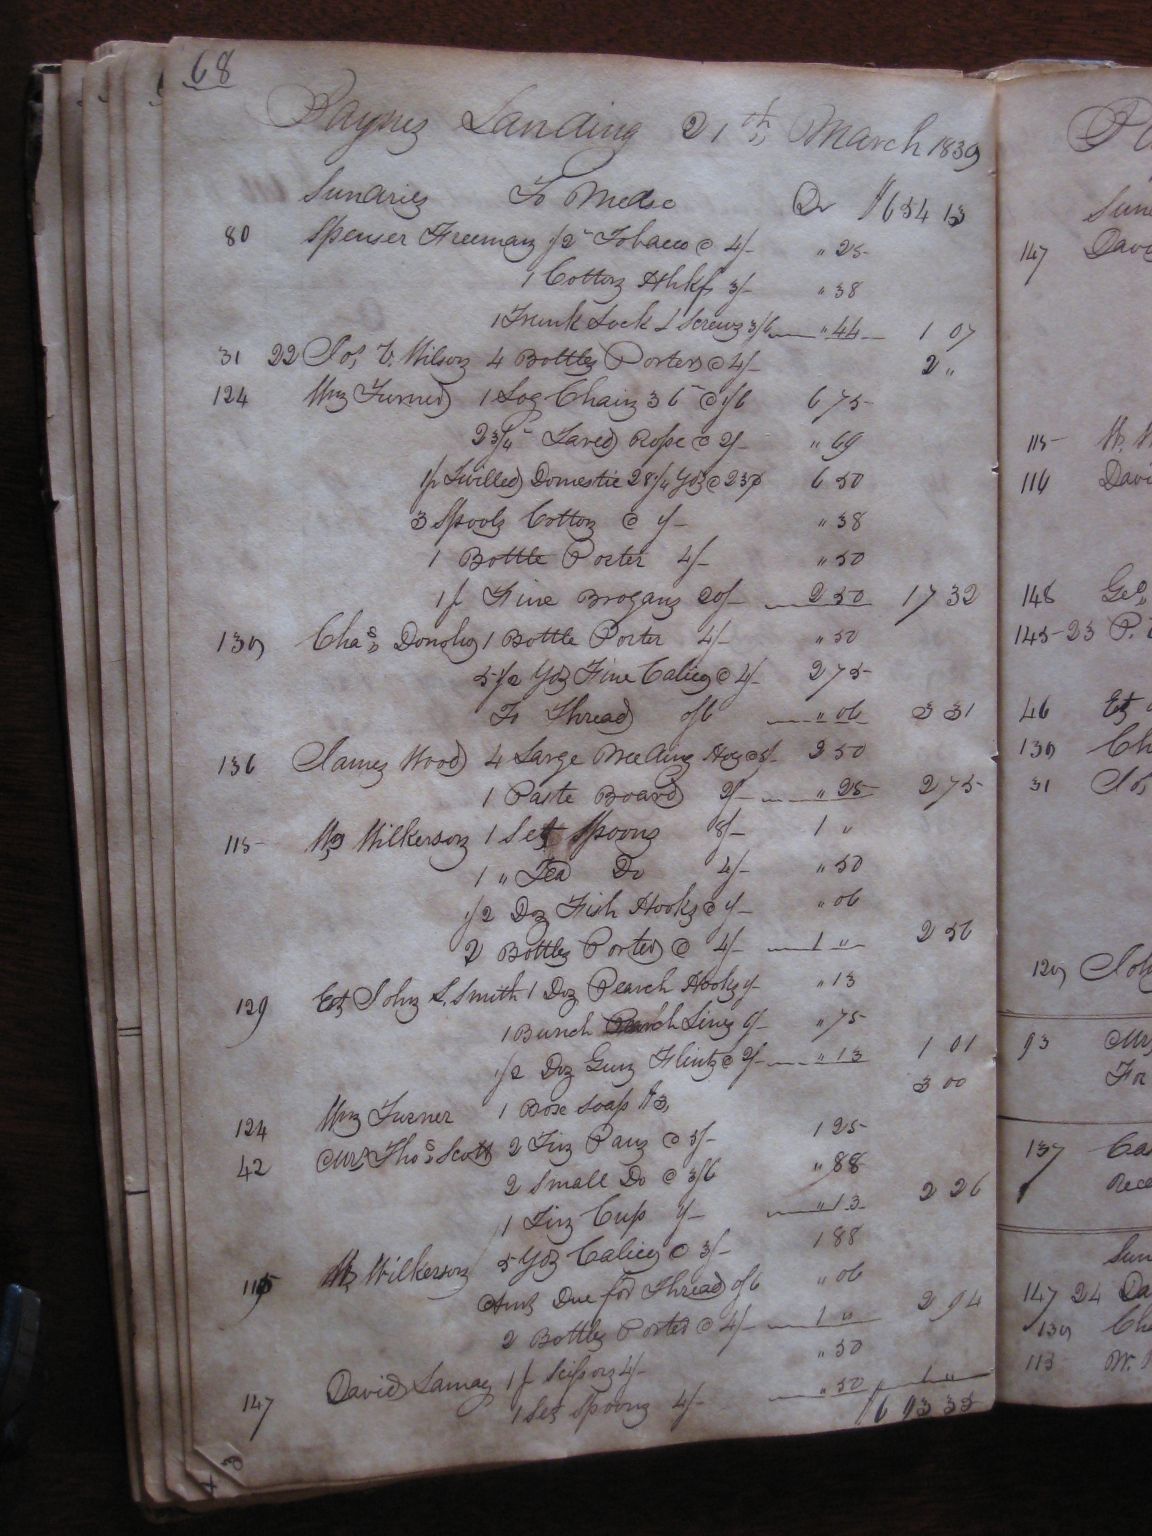 68
Paynes Landing 21th March 1839
Sundries To Mdse Dr $654 13
80 Spenser Freeman 1/2 " Tobacco @ 4/- " 25
1 Cotton Hhkf 3/- " 38
1 Trunk Lock & Screws 3/6 " 44 1 07
31 22 Jos. V. Wilson 4 Bottles Porter @ 4/- 2 "
124 Wm Turner 1 Log Chain 36 " @ 1/6 6 75
2 3/4 " Tared Rope @ 2/- " 69
1 p Twilled Domestic 28 1/4 Yds @ 23¢ 6 50
3 Spools Cotton @ 1/- " 38
1 Bottle Porter 4/- " 50
1 p Fine Brogans 20/- 2 50 17 32
139 Chas. Donoho 1 Bottle Porter 4/- " 50
5 1/2 Yds Fine Calico @ 4/- 2 75
To Thread 0/6 " 06 3 31
136 James Wood 4 Large Weeding Hoes @ 5/- 2 50
1 Paste Board 2/- " 25 2 75
115 Wm Wilkerson 1 Set Spoons 8/- 1 "
1 " Tea Do 4/- " 50
1/2 Doz Fish Hooks @ 1/- " 06
2 Bottles Porter @ 4/- 1 " 2 56
129 Est John S. Smith 1 Doz Pearch Hooks 1/- " 13
1 Bunch Pearch Lines 6/- " 75
1/2 Doz Gun Flints @ 2/- " 13 1 01
124 Wm Turner 1 Box Soap $3, 3 00
42 Mrs Thos. Scott 2 Tin Pans @ 5/- 1 25
2 Small Do @ 3/6 " 88
1 Tin Cup 1/- " 13 2 26
115 Wm Wilkerson 5 Yds Calico @ 3/- 1 88
Amt Due for Thread 0/6 " 06
2 Bottles Porter @ 4/- 1 " 2 94
147 David Lamay 1 p Scissors 4/- " 50
1 Set Spoons 4/- " 50 1 "
$693 35
Pa
Sun
147 Davi
115 W. W
116 Davi
148 Geo.
145 23 P.
46 Est
139 Ch
31 Jos
129 Joh
93 Mr
For
137 Ca
Rece
Sun
147 24 Da
139 Cha
113 W. W